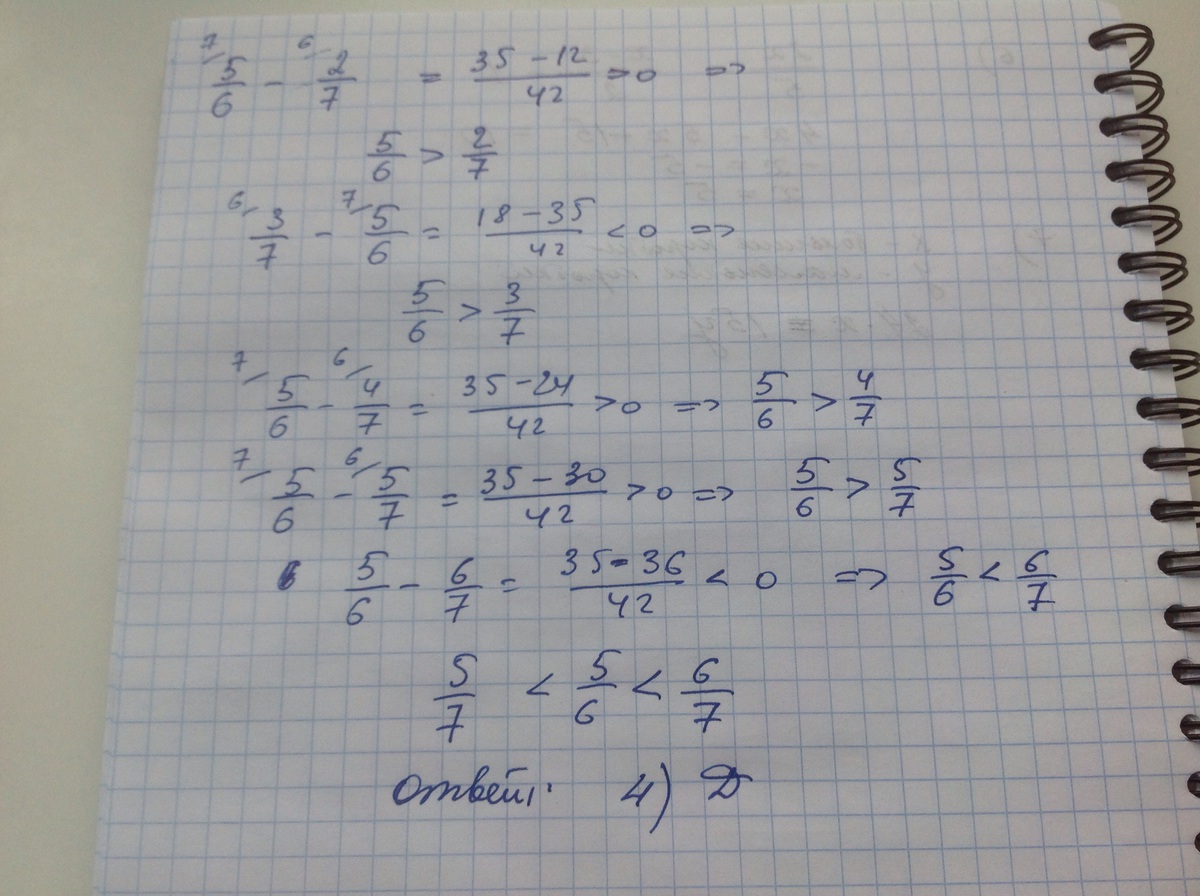 7/ 5/6 - 6/ 2/7 = (35 - 12)/42 > 0 =>
5/6 > 2/7
6/ 3/7 - 7/ 5/6 = (18 - 35)/42 < 0 =>
5/6 > 3/7
7/ 5/6 - 6/ 4/7 = (35 - 24)/42 > 0 => 5/6 > 4/7
7/ 5/6 - 6/ 5/7 = (35 - 30)/42 > 0 => 5/6 > 5/7
5/6 - 6/7 = (35 - 36)/42 < 0 => 5/6 < 6/7
5/7 < 5/6 < 6/7
Ответ: 4) D